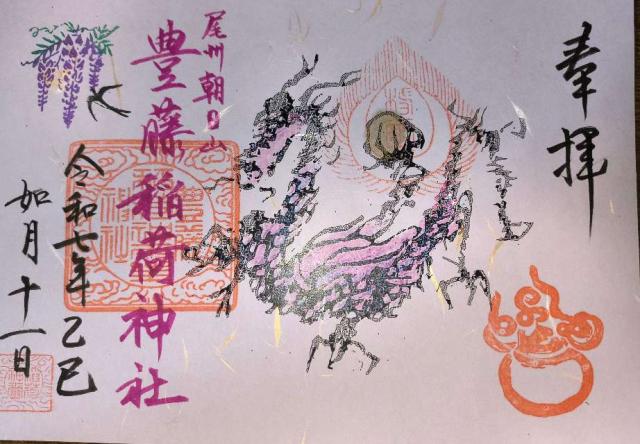 奉拝
尾州朝日山
豊藤稲荷神社
令和七年乙巳
如月十一日